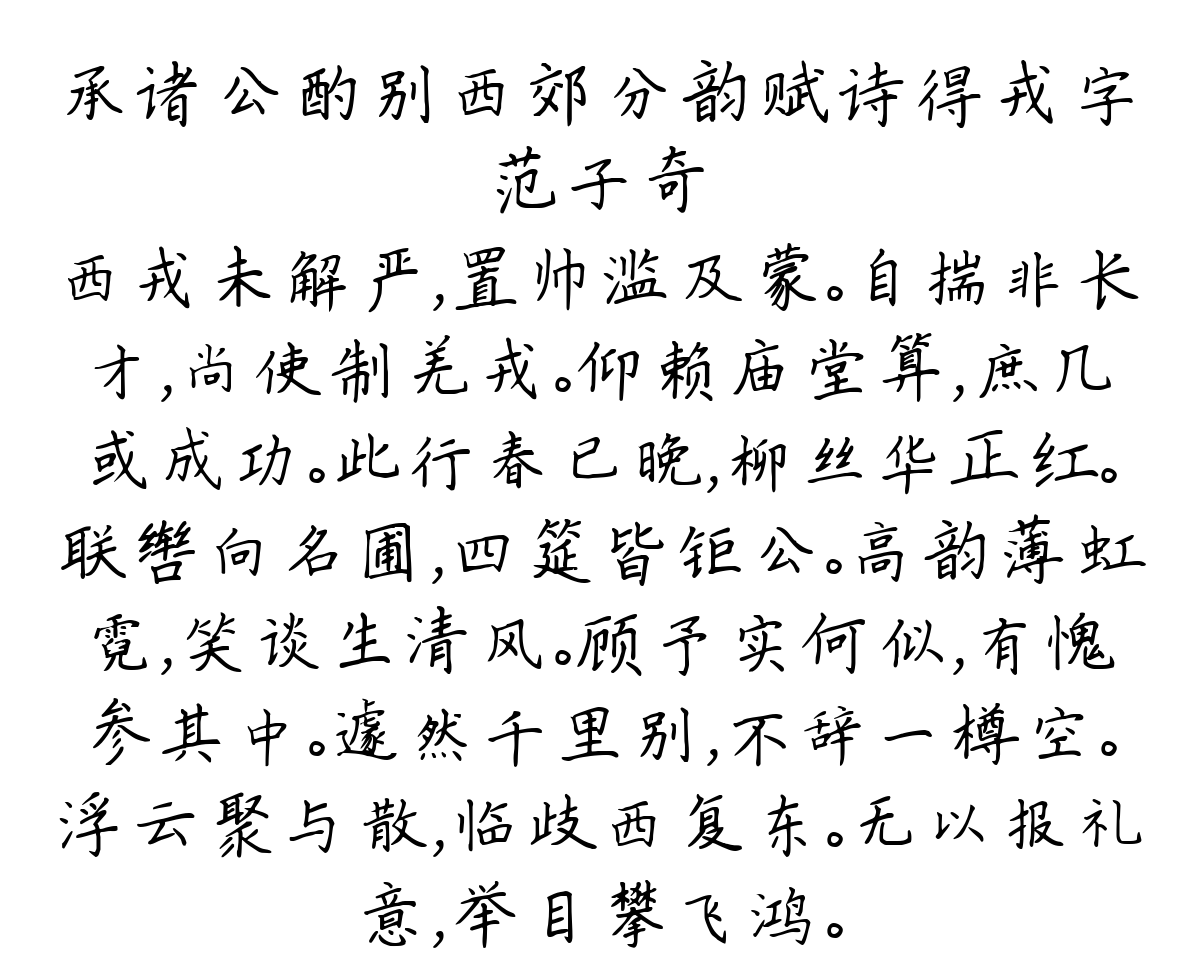 承诸公酌别西郊分韵赋诗得戎字
范子奇
西戎未解严,置帅滥及蒙。自揣非长
才,尚使制羌戎。仰赖庙堂算,庶几
或成功。此行春已晚,柳丝华正红。
联辔向名圃,四筵皆钜公。高韵薄虹
霓,笑谈生清风。顾予实何似,有愧
参其中。遽然千里别,不辞一樽空。
浮云聚与散,临歧西复东。无以报礼
意,举目攀飞鸿。